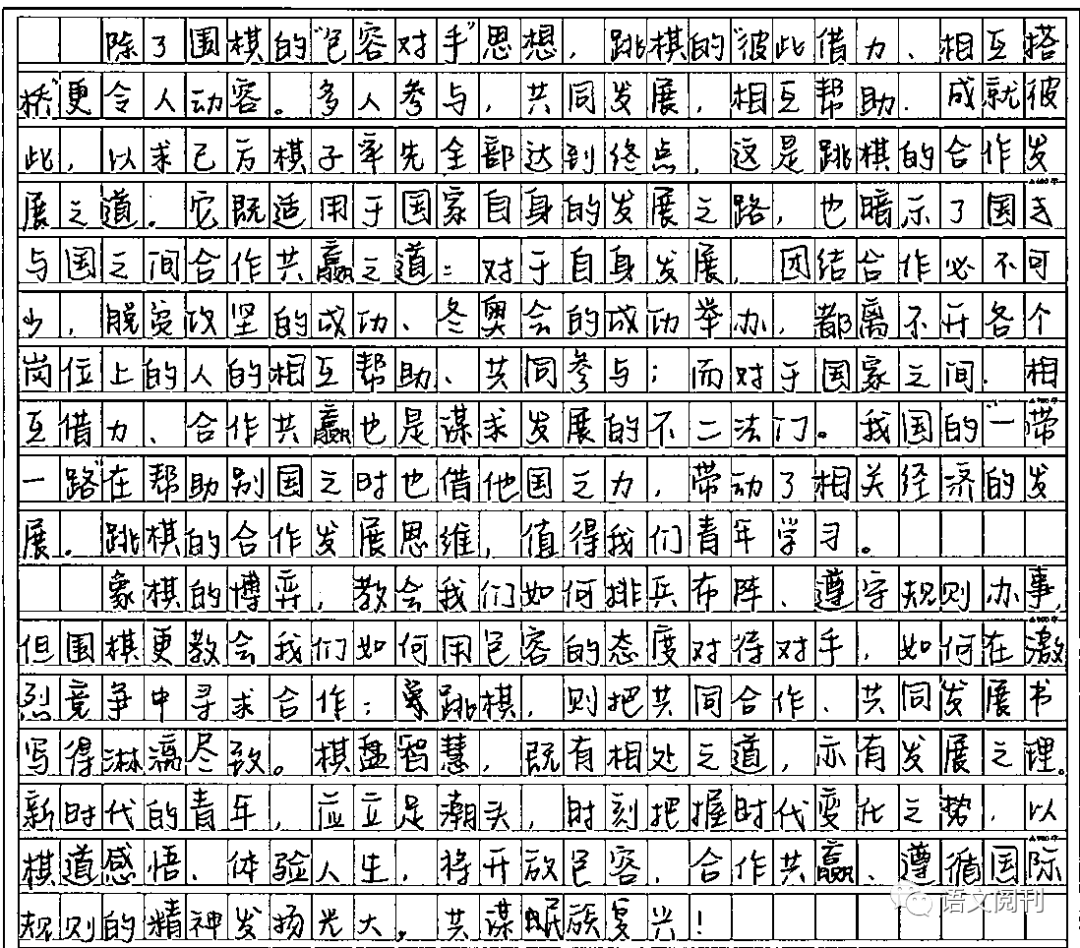 除了围棋的“包容对手”思想，跳棋的“彼此借力、相互搭
桥”更令人动容。多人参与，共同发展，相互帮助，成就彼
此，以求己方棋子率先全部达到终点，这是跳棋的合作发
展之道。它既适用于国家自身的发展之路，也暗示了国
与国之间合作共赢之道：对于自身发展，团结合作必不可
少，脱贫攻坚的成功、冬奥会的成功举办，都离不开各个
岗位上的人的相互帮助、共同参与；而对于国家之间，相
互借力、合作共赢也是谋求发展的不二法门。我国的“一带
一路”在帮助别国之时也借他国之力，带动了相关经济的发
展。跳棋的合作发展思维，值得我们青年学习。
象棋的博弈，教会我们如何排兵布阵、遵守规则办事，
但围棋更教会我们如何用包容的态度对待对手，如何在激
烈竞争中寻求合作；跳棋，则把共同合作、共同发展书
写得淋漓尽致。棋盘智慧，既有相处之道，亦有发展之理。
新时代的青年，应立足潮头，时刻把握时代变化之势，以
棋道感悟、体验人生，将开放包容、合作共赢、遵循国际
规则的精神发扬光大，共谋民族复兴！
语文阅刊